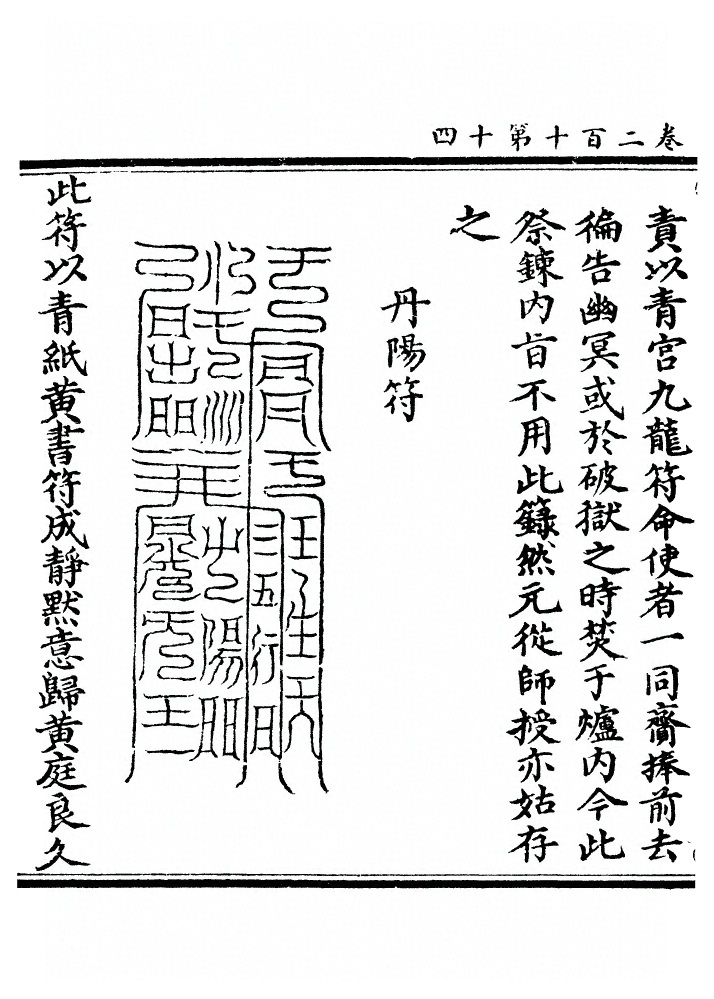 卷二百十第十四
責以青宮九龍符命使者一同齎捧前去
徧告幽冥或於破獄之時焚于爐内今此
祭鍊内旨不用此籙然元從師授亦姑存
之
丹陽符
此符以青紙黄書符成靜默意歸黄庭良久